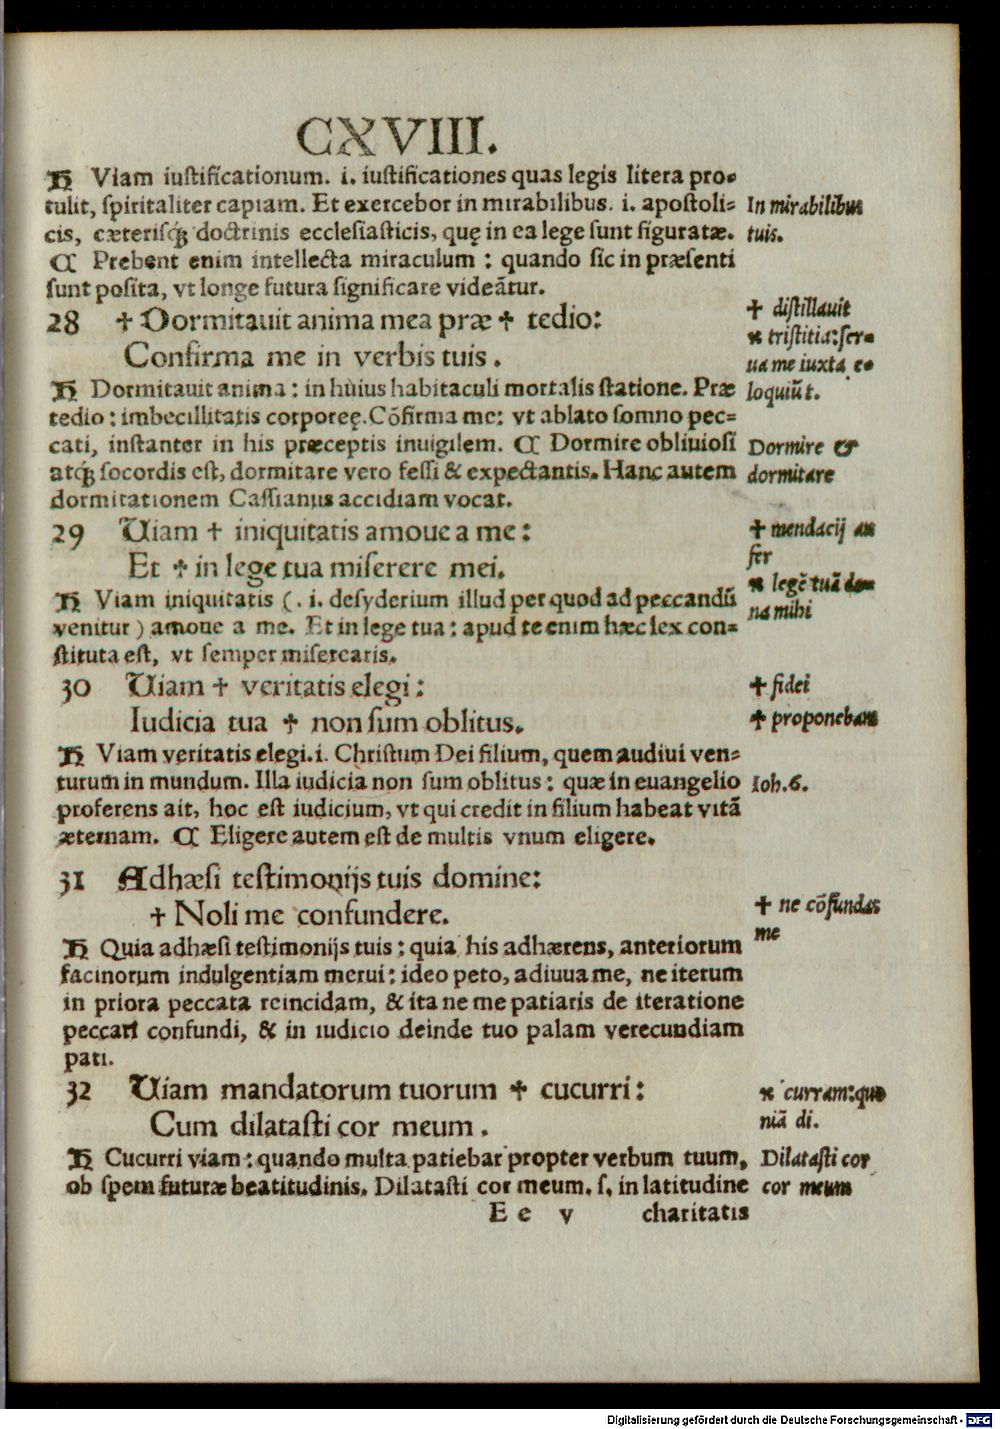 CXVIII.
Ħ Viam iustificationum. i. iustificationes quas legis litera pro-
tulit, spiritaliter capiam. Et exercebor in mirabilibus. i. apostoli-
cis, cæterisq́ doctrinis ecclesiasticis, quę in ea lege sunt figuratæ.
In mirabilibus
tuis.
¶ Prebent enim intellecta miraculum : quando sic in præsenti
sunt posita, vt longe futura significare videãtur.
28 ✝ Dormitauit anima mea præ ✝ tedio:
Confirma me in verbis tuis .
✝ distillauit
✠ tristitia: ser-
ua me iuxta e-
loquiũ t.
Ħ Dormitauit anima : in huius habitaculi mortalis statione. Præ
tedio : imbecillitatis corporeę. Cõfirma me: vt ablato somno pec-
cati, instanter in his præceptis inuigilem. ¶ Dormire obliuiosi
atq́ socordis est, dormitare vero fessi & expectantis. Hanc autem
dormitationem Cassianus accidiam vocat.
Dormire &
dormitare
29 Uiam ✝ iniquitatis amoue a me :
Et ✠ in lege tua miserere mei.
✝ mendacij au
fer
✠ legẽ tuã do-
na mihi
Ħ Viam iniquitatis (. i. desyderium illud per quod ad peccandũ
venitur ) amoue a me. Et in lege tua : apud te enim hæc lex con-
stituta est, vt semper miserearis.
30 Uiam ✝ veritatis elegi :
Iudicia tua ✠ non sum oblitus.
✝ fidei
✠ proponebam
Ħ Viam veritatis elegi. i. Christum Dei filium, quem audiui ven-
turum in mundum. Illa iudicia non sum oblitus : quæ in euangelio
proferens ait, hoc est iudicium, vt qui credit in filium habeat vitã
æternam. ¶ Eligere autem est de multis vnum eligere.
Ioh. 6.
31 Adhæsi testimonijs tuis domine:
✝ Noli me confundere.
✝ ne cõfundas
me
Ħ Quia adhæsi testimonijs tuis : quia his adhærens, anteriorum
facinorum indulgentiam merui : ideo peto, adiuua me, ne iterum
in priora peccata reincidam, & ita ne me patiaris de iteratione
peccari confundi, & in iudicio deinde tuo palam verecundiam
pati.
32 Uiam mandatorum tuorum ✠ cucurri :
Cum dilatasti cor meum .
✠ curram: quo
niã di.
Ħ Cucurri viam : quando multa patiebar propter verbum tuum,
ob spem futuræ beatitudinis. Dilatasti cor meum. s. in latitudine
Dilatasti cor
cor meum
E e v charitatis
Digitalisierung gefördert durch die Deutsche Forschungsgemeinschaft - DFG